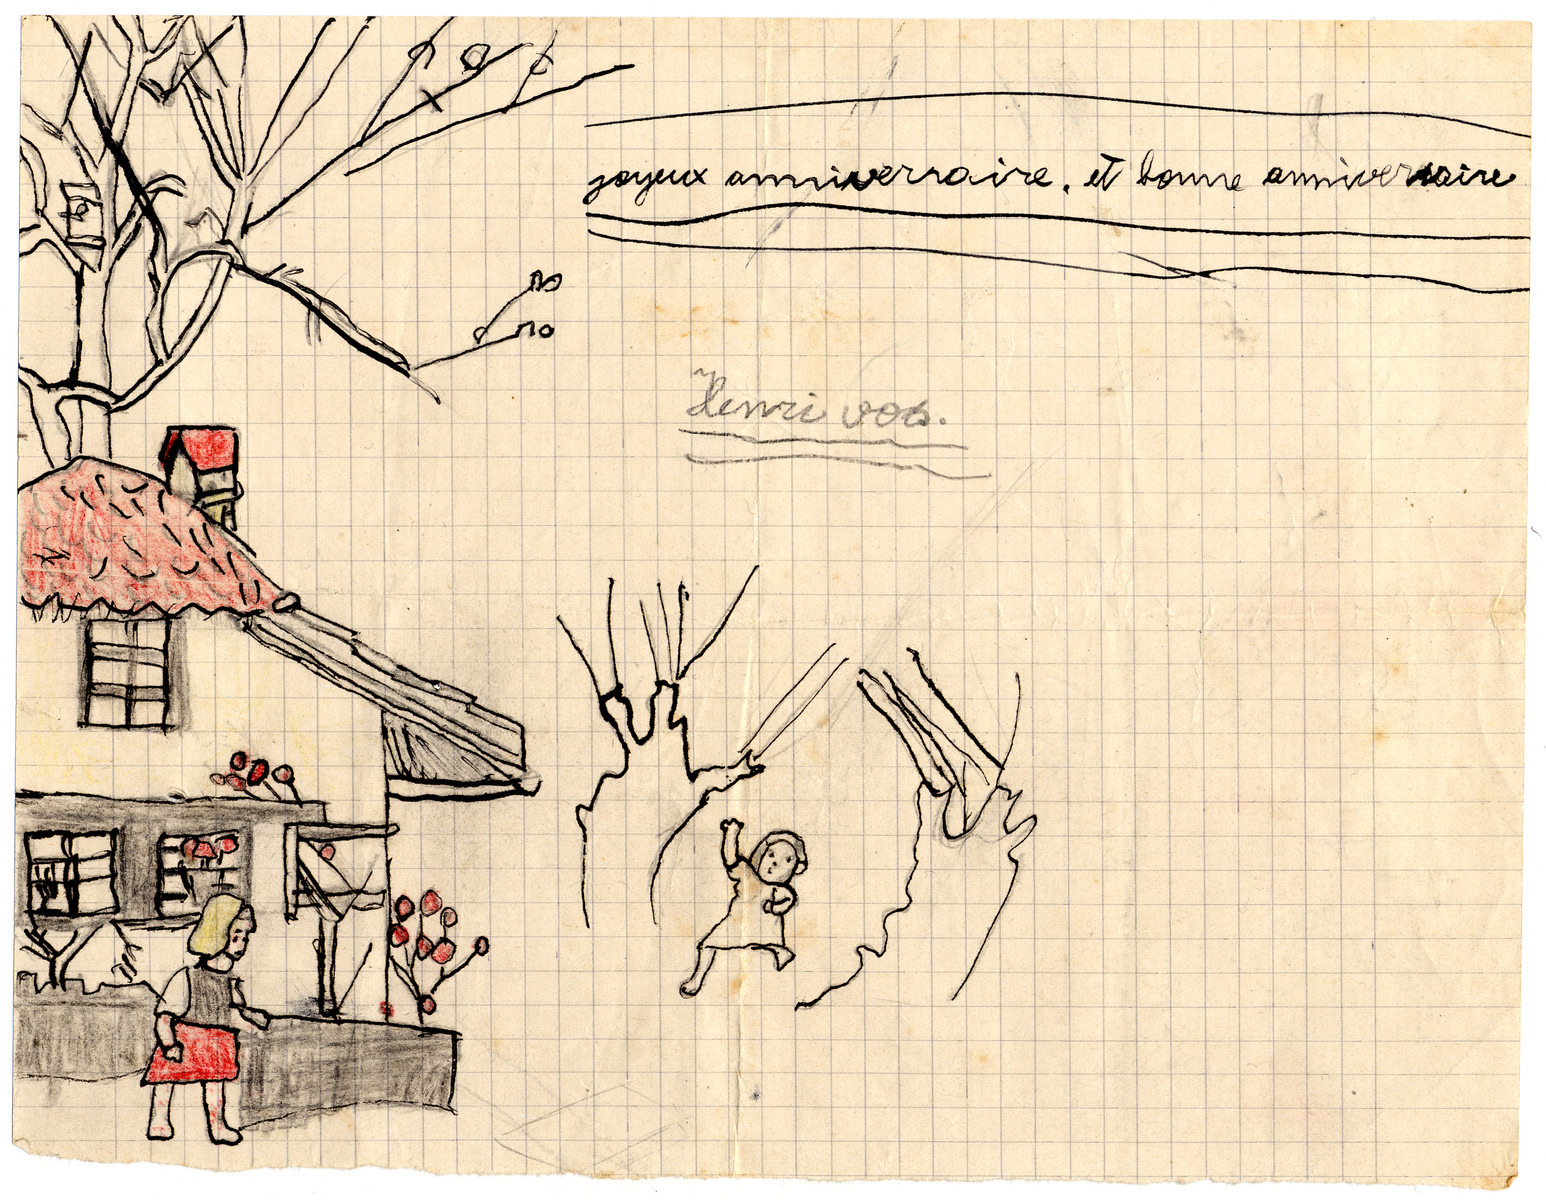 joyeux anniverraire. et bonne anniversaire
Henri vos.